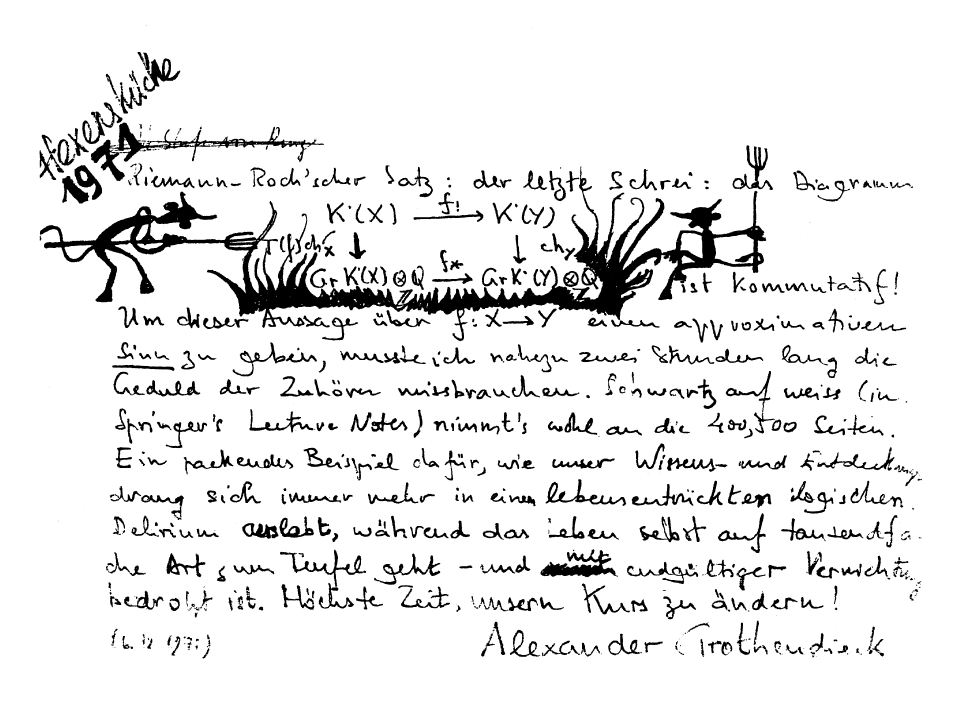 Hexenküche
1971
Riemann-Roch'scher Satz: der letzte Schrei: das Diagramm
K˙(X) —f!→ K˙(Y)
T(f)chX ↓ ↓ chY
Gr K˙(X)⊗ℤQ —f*→ Gr K˙(Y)⊗ℤQ
ist kommutatif!
Um dieser Aussage über f: X→Y einen approximativen
Sinn zu geben, musste ich nahezu zwei Stunden lang die
Geduld der Zuhörer missbrauchen. Schwartz auf weiss (in
Springer's Lecture Notes) nimmt's wohl an die 400, 500 Seiten.
Ein packendes Beispiel dafür, wie unser Wissens- und Entdeckungs
drang sich immer mehr in einem lebensentrückten logischen
Delirium auslebt, während das Leben selbst auf tausendfa
che Art zum Teufel geht - und mit endgültiger Vernichtung
bedroht ist. Höchste Zeit, unsern Kurs zu ändern!
Alexander Grothendieck